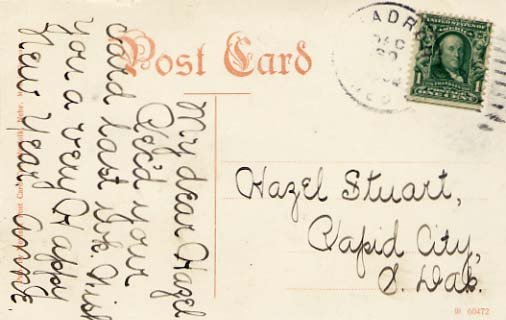 Post Card
My dear Hazel
Rec'd your
card last wk. Wish
you a very Happy
New Year.
Hazel Stuart,
Rapid City,
S. Dak.
60472
1 1